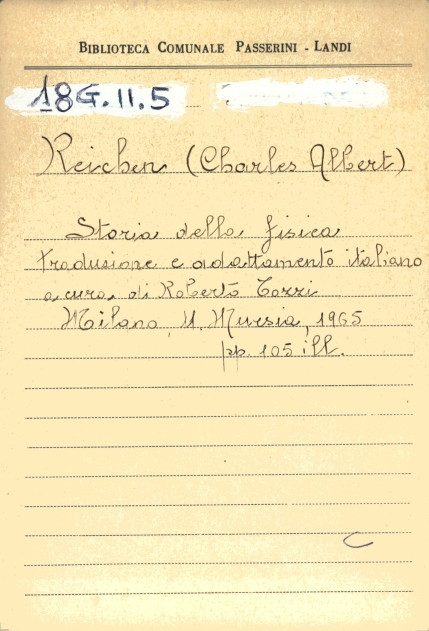 BIBLIOTECA COMUNALE PASSERINI - LANDI
18G.II.5
Reichen (Charles Albert)
Storia della fisica
traduzione e adattamento italiano
a cura di Roberto Tozzi
Milano, U. Mursia, 1965
pp. 105 ill.